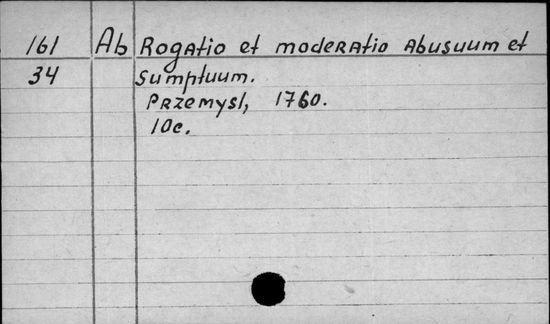 161 Ab Rogatio et moderatio abusuum et
34 sumptuum.
Przemysl, 1760.
10c.